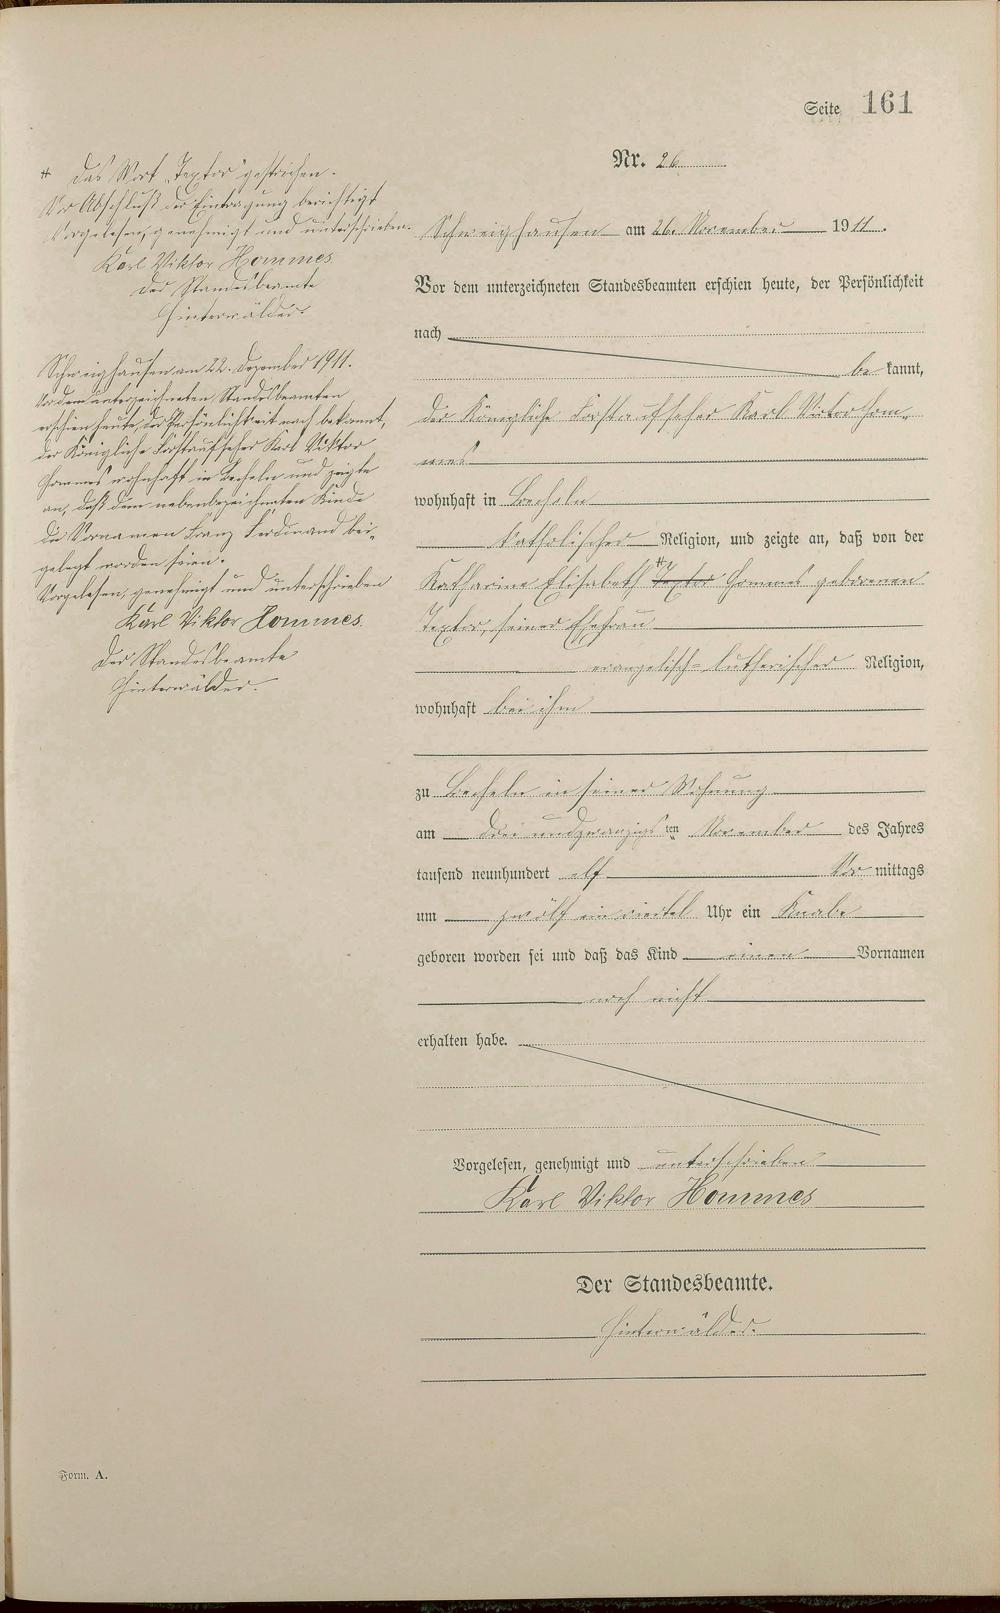 Seite 161
Nr. 26
# Das Wort „Textor" gestrichen.
Vor Abschluß der Eintragung berichtigt
Vorgelesen, genehmigt und unterschrieben.
Karl Viktor Hommes
Der Standesbeamte
Hinterwälder.
Schweighausen am 22. Dezember 1911.
Vor dem unterzeichneten Standesbeamten
erschien heute, der Persönlichkeit nach bekannt,
der Königliche Forstaufseher Karl Viktor
Hommes wohnhaft in Becheln und zeigte
an, daß dem nebenbezeichneten Kinde
die Vornamen Franz Ferdinand bei-
gelegt worden seien.
Vorgelesen, genehmigt und unterschrieben
Karl Viktor Hommes.
Der Standesbeamte
Hinterwälder.
Schweighausen am 26. November 1911.
Vor dem unterzeichneten Standesbeamten erschien heute, der Persönlichkeit
nach
be kannt,
der Königliche Forstaufseher Karl Victor Hom-
mes
wohnhaft in Becheln
katholischer Religion, und zeigte an, daß von der
Katharina Elisabeth # Textor Hommes geborenen
Textor, seiner Ehefrau
evangelisch-lutherischer Religion,
wohnhaft bei ihm
zu Becheln in seiner Wohnung
am drei undzwanzigs ten November des Jahres
tausend neunhundert elf Vor mittags
um zwölf ein viertel Uhr ein Knabe
geboren worden sei und daß das Kind einen Vornamen
noch nicht
erhalten habe.
Vorgelesen, genehmigt und unterschrieben
Karl Viktor Hommes
Der Standesbeamte.
Hinterwälder.
Form. A.